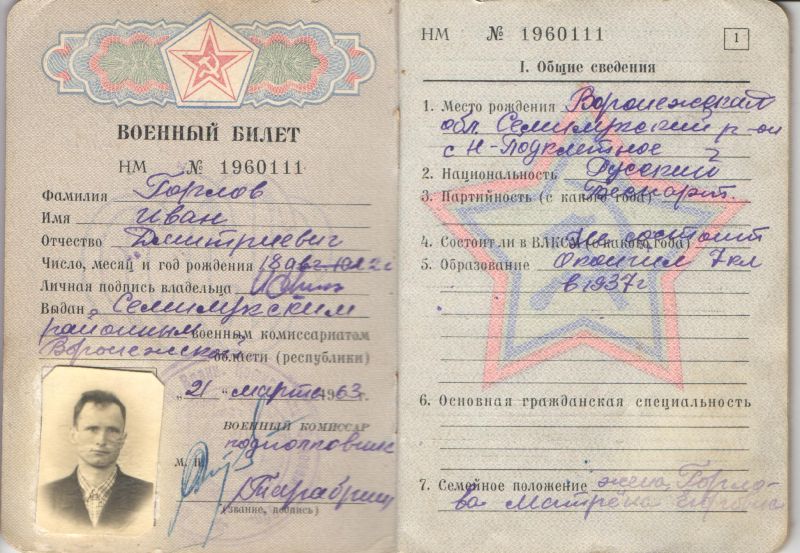 ВОЕННЫЙ БИЛЕТ
НМ № 1960111
Фамилия Горлов
Имя Иван
Отчество Дмитриевич
Число, месяц и год рождения 18 авг.
Личная подпись владельца
Выдан Семилукским
районным военным комиссариатом
Воронежской области (республики)
„21" марта 1963 г.
ВОЕННЫЙ КОМИССАР
подполковник
М. П.
Тарабрин
(звание, подпись)
НМ № 1960111
1
I. Общие сведения
1. Место рождения Воронежская
обл. Семилукский р-он
с Н-Подклетное
2. Национальность Русский
3. Партийность (с какого года) Беспарт.
4. Состоит ли в ВЛКСМ (с какого года) Не состоит
5. Образование Окончил 7 кл
в 1937г
6. Основная гражданская специальность
7. Семейное положение жена Горло-
ва Матрёна Егоровна